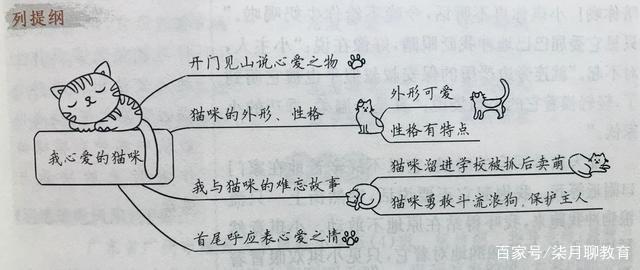 列提纲
开门见山说心爱之物
猫咪的外形、性格
外形可爱
性格有特点
我心爱的猫咪
我与猫咪的难忘故事
猫咪溜进学校被抓后卖萌
猫咪勇敢斗流浪狗,保护主人
首尾呼应表心爱之情
百家号/柒月聊教育